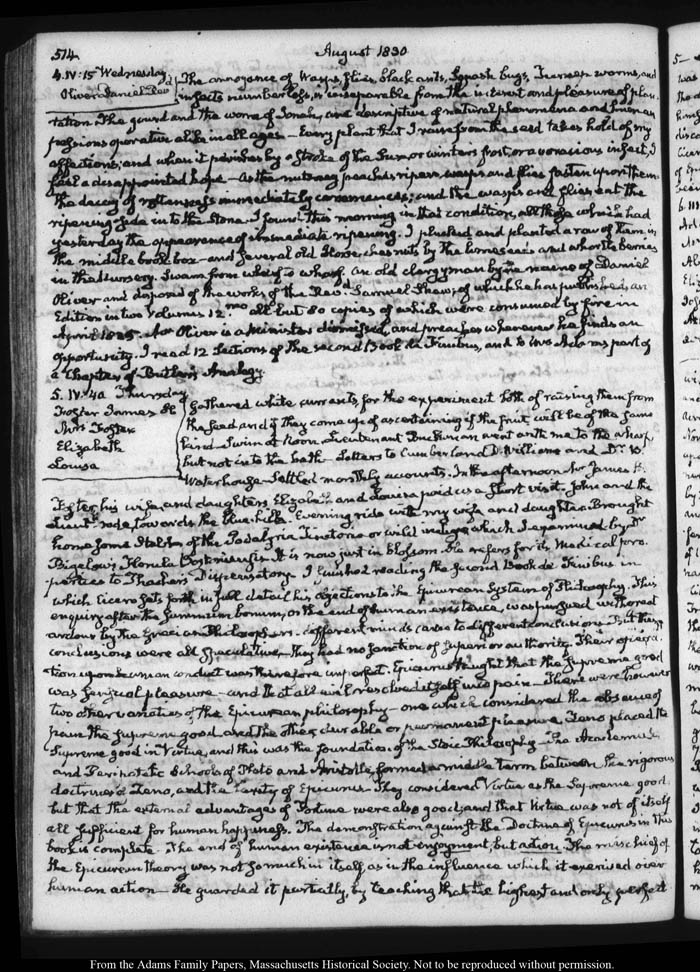 514
August 1830
4. IV:15 Wednesday
Oliver Daniel Revd
The annoyance of Wasps, flies, black ants, Squash bugs, Tree worms, and
insects numberless, is inseparable from the interest and pleasure of plan-
tation. The gourd and the worm of Jonah, are descriptive of natural phenomena and human
passions operative alike in all ages— Every plant that I raise from the seed takes hold of my
affections; and when it perishes by a stroke of the Sun, or winters frost, or a voracious insect, I
feel a disappointed hope— As the nutmeg peaches ripen wasps and flies fasten upon them
the decay of rottenness immediately commences; and the wasps and flies eat the
ripening side in to the Stone. I found this morning in that condition, all those which had
yesterday the appearance of immediate ripening. I plucked and planted a row of them in
the middle box— and several old Horse chesnuts by the and whortle berries
in the Nursery. Swam from wharf to wharf. An old clergyman by the name of Daniel
Oliver and disposed of the works of the Revd. Samuel of which he has published an
Edition in two Volumes 12.mo all but 80 copies of which were consumed by fire in
April 1825. Mr Oliver is a Minister dismissed, and preaches wherever he finds an
opportunity. I read 12 Sections of the second Book de Finibus, and to Mrs Adams part of
a Chapter of Butler's Analogy.
5. IV:40 Thursday
Foster James H.
Mrs Foster
Elizabeth
Louisa
Gathered white currants for the experiment both of raising them from
the seed and if they come up of ascertaining if the fruit will be of the same
kind. Swim at Noon. Lieutenant Buchanan went with me to the wharf,
but not into the bath— Letters to Cumberland D. Williams and Dr. B.
Waterhouse— Settled monthly accounts. In the afternoon Mr James H.
Foster, his wife, and daughters Elizabeth and Louisa paid us a short visit. John and the
Lieutt. rode towards the blue-hills. Evening ride with my wife and daughter. Brought
home some Stalks of the Podalyria Tinctoria or wild indigo which I examined by Dr
Bigelow's Florula Bostoniensis. It is now just in blossom. He refers for its Medical pro-
perties to Thacher's Dispensatory. I finished reading the second Book de Finibus in
which Cicero sets forth in full detail his objections to the Epicurean System of Philosophy. This
enquiry after the Summum bonum, or the end of human existence, was pursued with great
ardour by the Grecian Philosophers. different minds came to different conclusions. But these
conclusions were all speculative— they had no sanction of superior authority. Their opera-
tion upon human conduct was therefore imperfect. Epicurus thought that the Supreme good
was sensual pleasure— and that all evil resolved itself into pain— There were however
two other varieties of the Epicurean philosophy— one which considered the absence of
pain the supreme good and the other durable or permanent pleasure. Zeno placed the
Supreme good in Virtue, and this was the foundation of the Stoic Philosophy— The Academic
and Peripatetic Schools of Plato and Aristotle, formed a middle term between the rigorous
doctrines of Zeno, and the laxity of Epicurus— They considered Virtue as the Supreme good
but that the external advantages of Fortune were also good, and that Virtue was not of itself
all sufficient for human happiness. The demonstration against the Doctrine of Epicurus in this
book is complete. The end of human existence is not enjoyment, but action. The mischief of
the Epicurean theory was not so much in itself as in the influence which it exercised over
human action— He guarded it partially, by teaching that the highest and only perfect
From the Adams Family Papers, Massachusetts Historical Society. Not to be reproduced without permission.